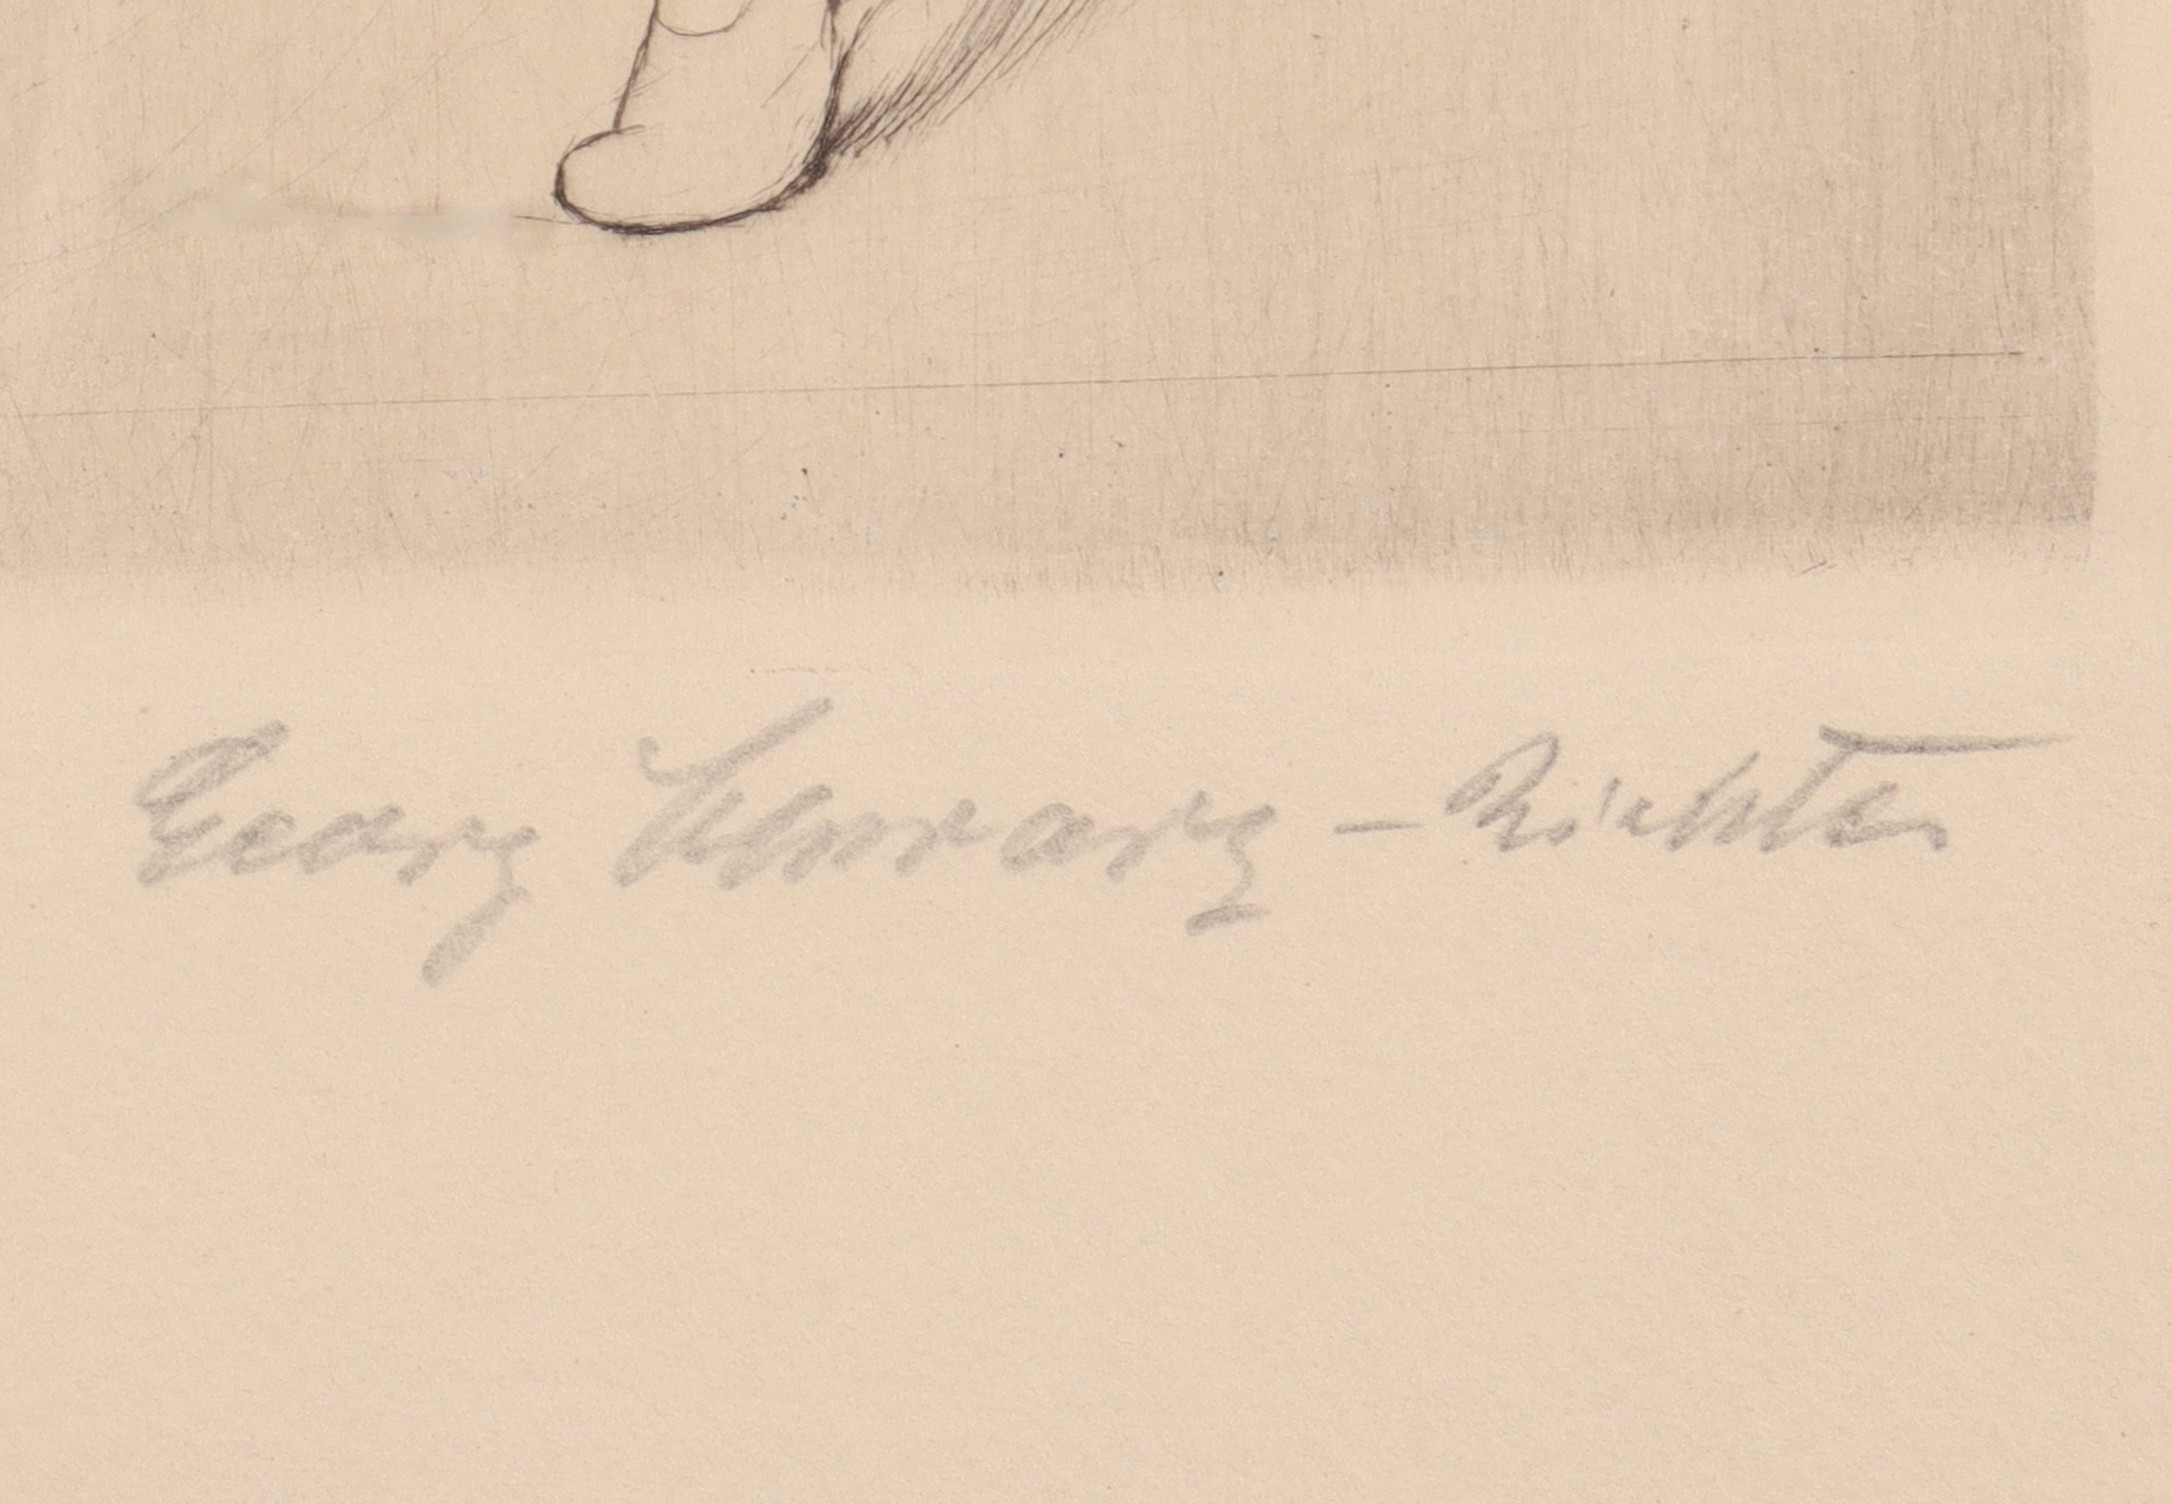 Georg Schwarz - Richter